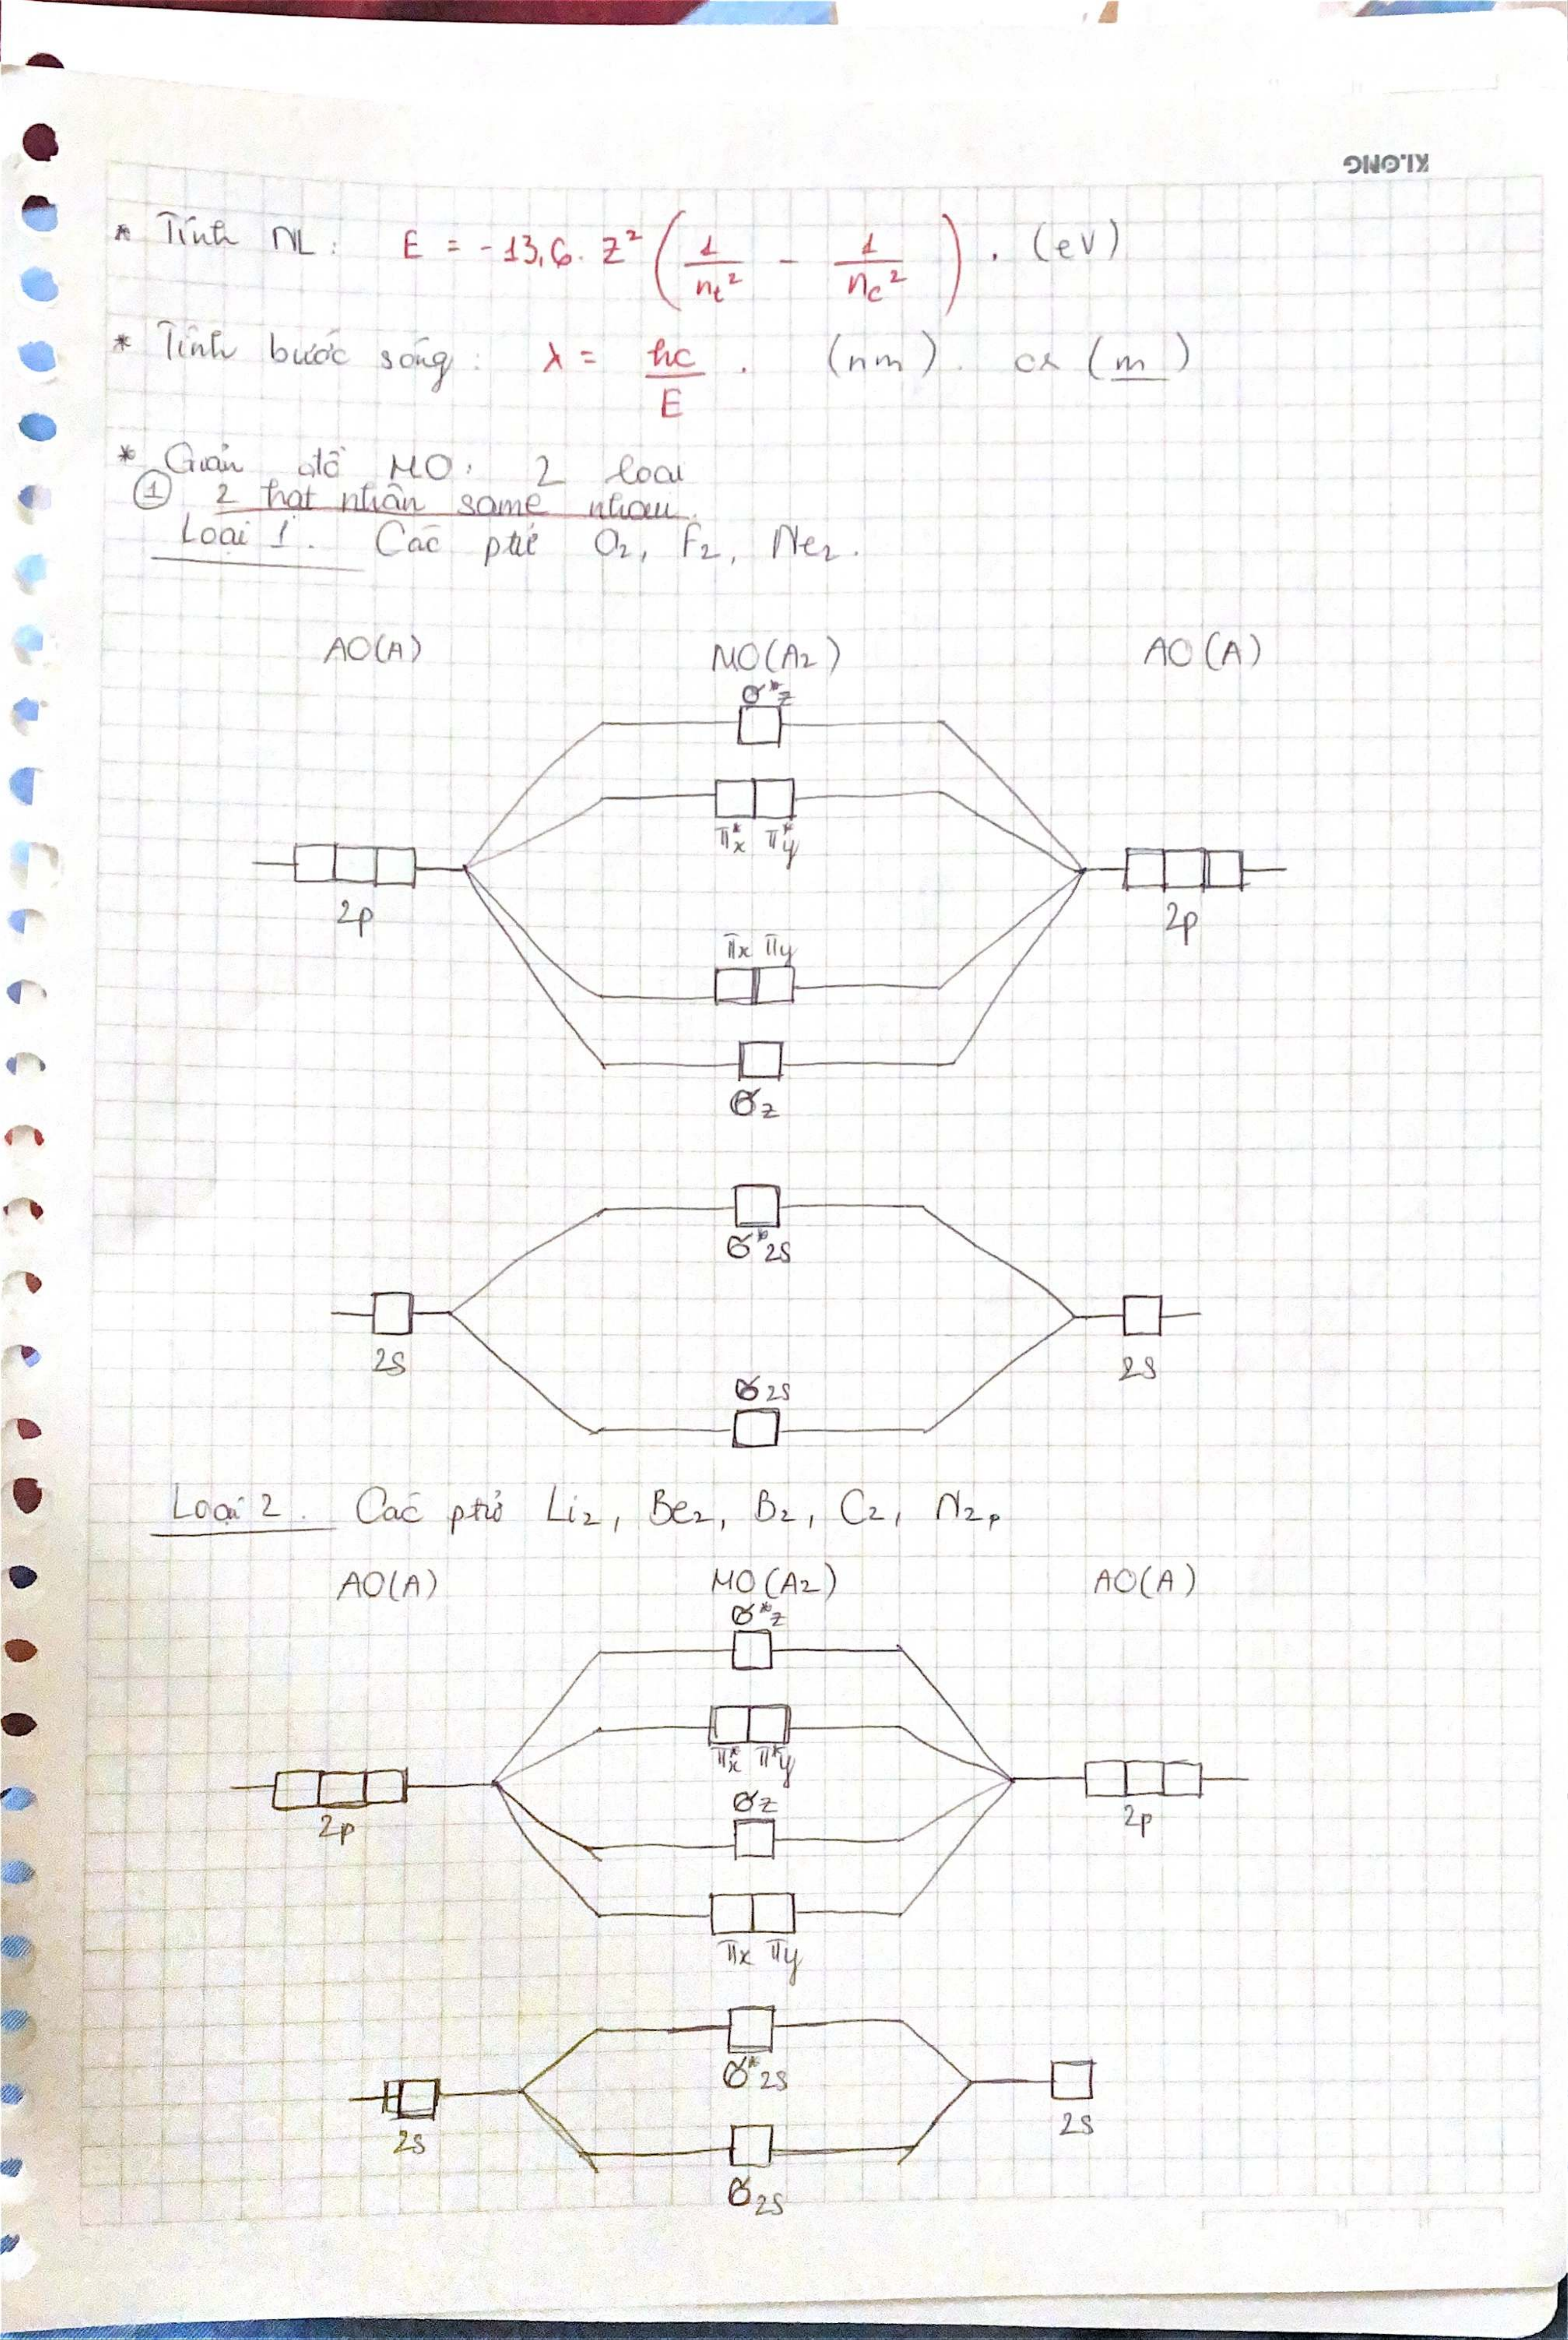 KLONG
* Tính NL: E = -13,6. Z² ( 1/nt² - 1/nc² ) . (eV)
* Tính bước sóng: λ = hc/E . (nm). or (m)
* Giản đồ MO: 2 loại
① 2 hạt nhân same nhau.
Loại 1. Các ptử O₂, F₂, Ne₂.
AO(A) MO(A₂) AO(A)
σ*z
π*x π*y
2p 2p
πx πy
σz
σ*2s
2s 2s
σ2s
Loại 2. Các ptử Li₂, Be₂, B₂, C₂, N₂,
AO(A) MO(A₂) AO(A)
σ*z
π*x π*y
σz
2p 2p
πx πy
σ*2s
2s 2s
σ2s